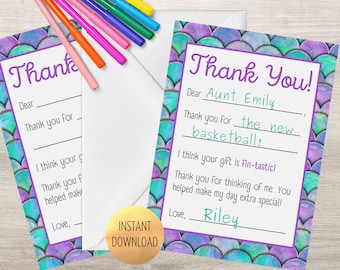 Thank
Dear
Thank you for
I think your
Thank you for
helped make
Love,
Thank You!
Dear Aunt Emily,
Thank you for the new
basketball!
I think your gift is Fin-tastic!
Thank you for thinking of me. You
helped make my day extra special!
Love, Riley
INSTANT
DOWNLOAD